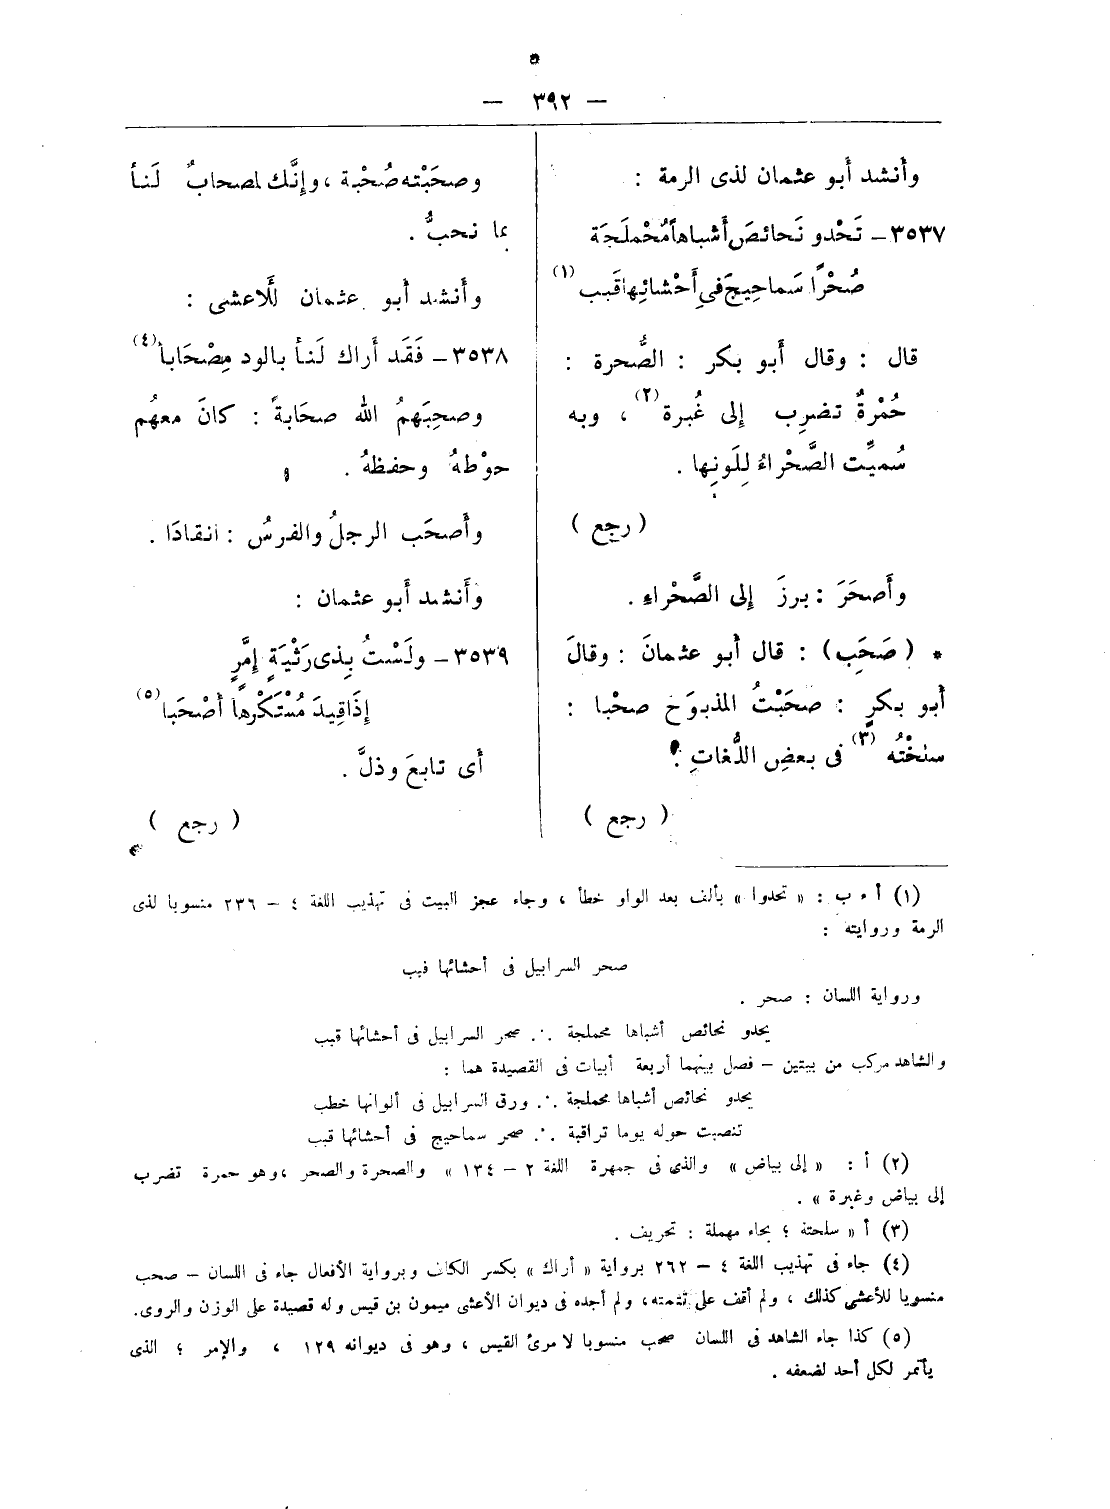 — ٣٩٢ —
وأنشد أبو عثمان لذى الرمة :
٣٥٣٧ – تَحْدو نَحائصَ أشباهاً مُحْملَجَة
صُحْرًا سَماحِيجَ فى أَحْشائِها قَبب (١)
قال : وقال أَبو بكر : الصُّحرة :
حُمْرةٌ تضرِب إلى غُبرة (٢) ، وبه
سُميِّت الصَّحْراءُ لِلَونِها .
( رجع )
وأَصحَرَ : برزَ إلى الصَّحْراءِ .
* ( صَحَِب ) : قال أَبو عثمانَ : وقالَ
أَبو بكرٍ : صحَبْتُ المذبوَحَ صحْبا :
سلخْتُه (٣) فى بعضِ اللُّغاتِ .
( رجع )
وصحَبْته صُحْبة ، وإِنَّك لمصحابٌ لَنا
بما نحبُّ .
وأَنشد أَبو عثمان للأَعشى :
٣٥٣٨ – فَقَد أَراك لَنا بالود مِصْحَابا (٤)
وصحِبَهمُ الله صحَابةً : كانَ معهُم
حوْطهُ وحفظهُ .
وأَصحَب الرجلُ والفرسُ : انقادَا .
وأَنشد أَبو عثمان :
٣٥٣٩ – ولَسْتُ بِذى رَثْيَةٍ إِمَّرٍ
إِذَا قِيدَ مُسْتَكْرهاً أَصْحَبا (٥)
أى تابعَ وذلَّ .
( رجع )
(١) أ ، ب : « تحدوا » بألف بعد الواو خطأ ، وجاء عجز البيت فى تهذيب اللغة ٤ – ٢٣٦ منسوبا لذى
الرمة وروايته :
صحر السرابيل فى أحشائها قبب
ورواية اللسان : صحر .
يحدو نحائص أشباها محملجة .·. صحر السرابيل فى أحشائها قبب
والشاهد مركب من بيتين – فصل بينهما أربعة أبيات فى القصيدة هما :
يحدو نحائص أشباها محملجة .·. ورق السرابيل فى ألوانها خطب
تنصبت حوله يوما تراقبة .·. صحر سماحيج فى أحشائها قبب
(٢) أ : « إلى بياض » والذى فى جمهرة اللغة ٢ – ١٣٤ » والصحرة والصحر ، وهو حمرة تضرب
إلى بياض وغبرة » .
(٣) أ « سلحتة ؛ بحاء مهملة : تحريف .
(٤) جاء فى تهذيب اللغة ٤ – ٢٦٢ برواية « أراك » بكسر الكاف وبرواية الأفعال جاء فى اللسان – صحب
منسوبا للأعشى كذلك ، ولم أقف على تتمته، ولم أجده فى ديوان الأعشى ميمون بن قيس وله قصيدة على الوزن والروى.
(٥) كذا جاء الشاهد فى اللسان صحب منسوبا لامرئ القيس ، وهو فى ديوانه ١٢٩ ، والإمر ؛ الذى
يأتمر لكل أحد لضعفه .